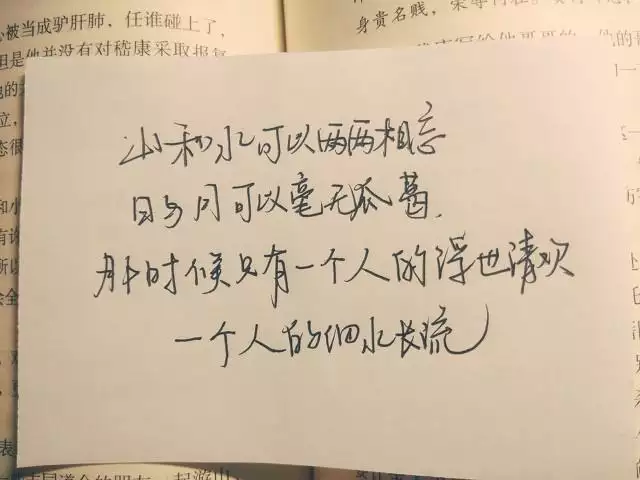 心被当成驴肝肺，任谁碰上了，
但是他并没有对嵇康采取报复
身贵名贱，荣辱何在
山和水可以两两相忘
日与月可以毫无瓜葛.
那时候只有一个人的浮世清欢
一个人的细水长流